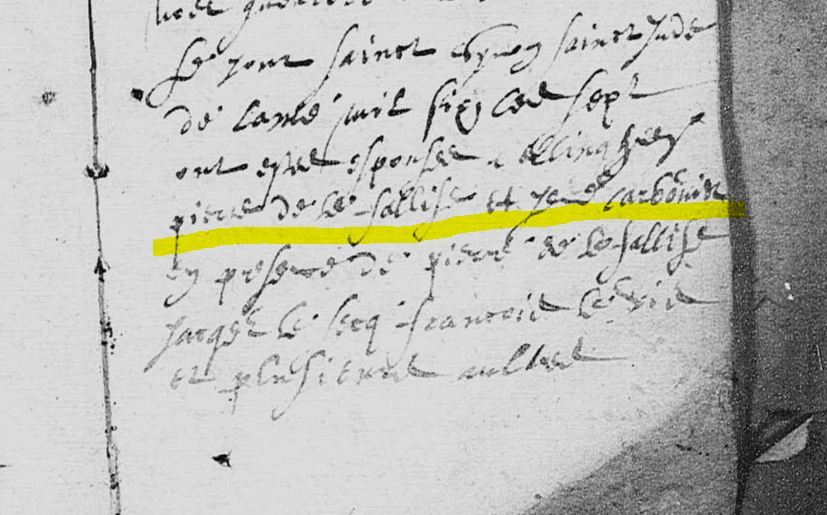 Le jour sainct Symon sainct Jude
de lanné mil six cens sept
ont estes espouses a
pierre de le sallise et Jenne carbonier
en presence de pierre de le sallise
Jacques le secq francois
et plusieurs aultres